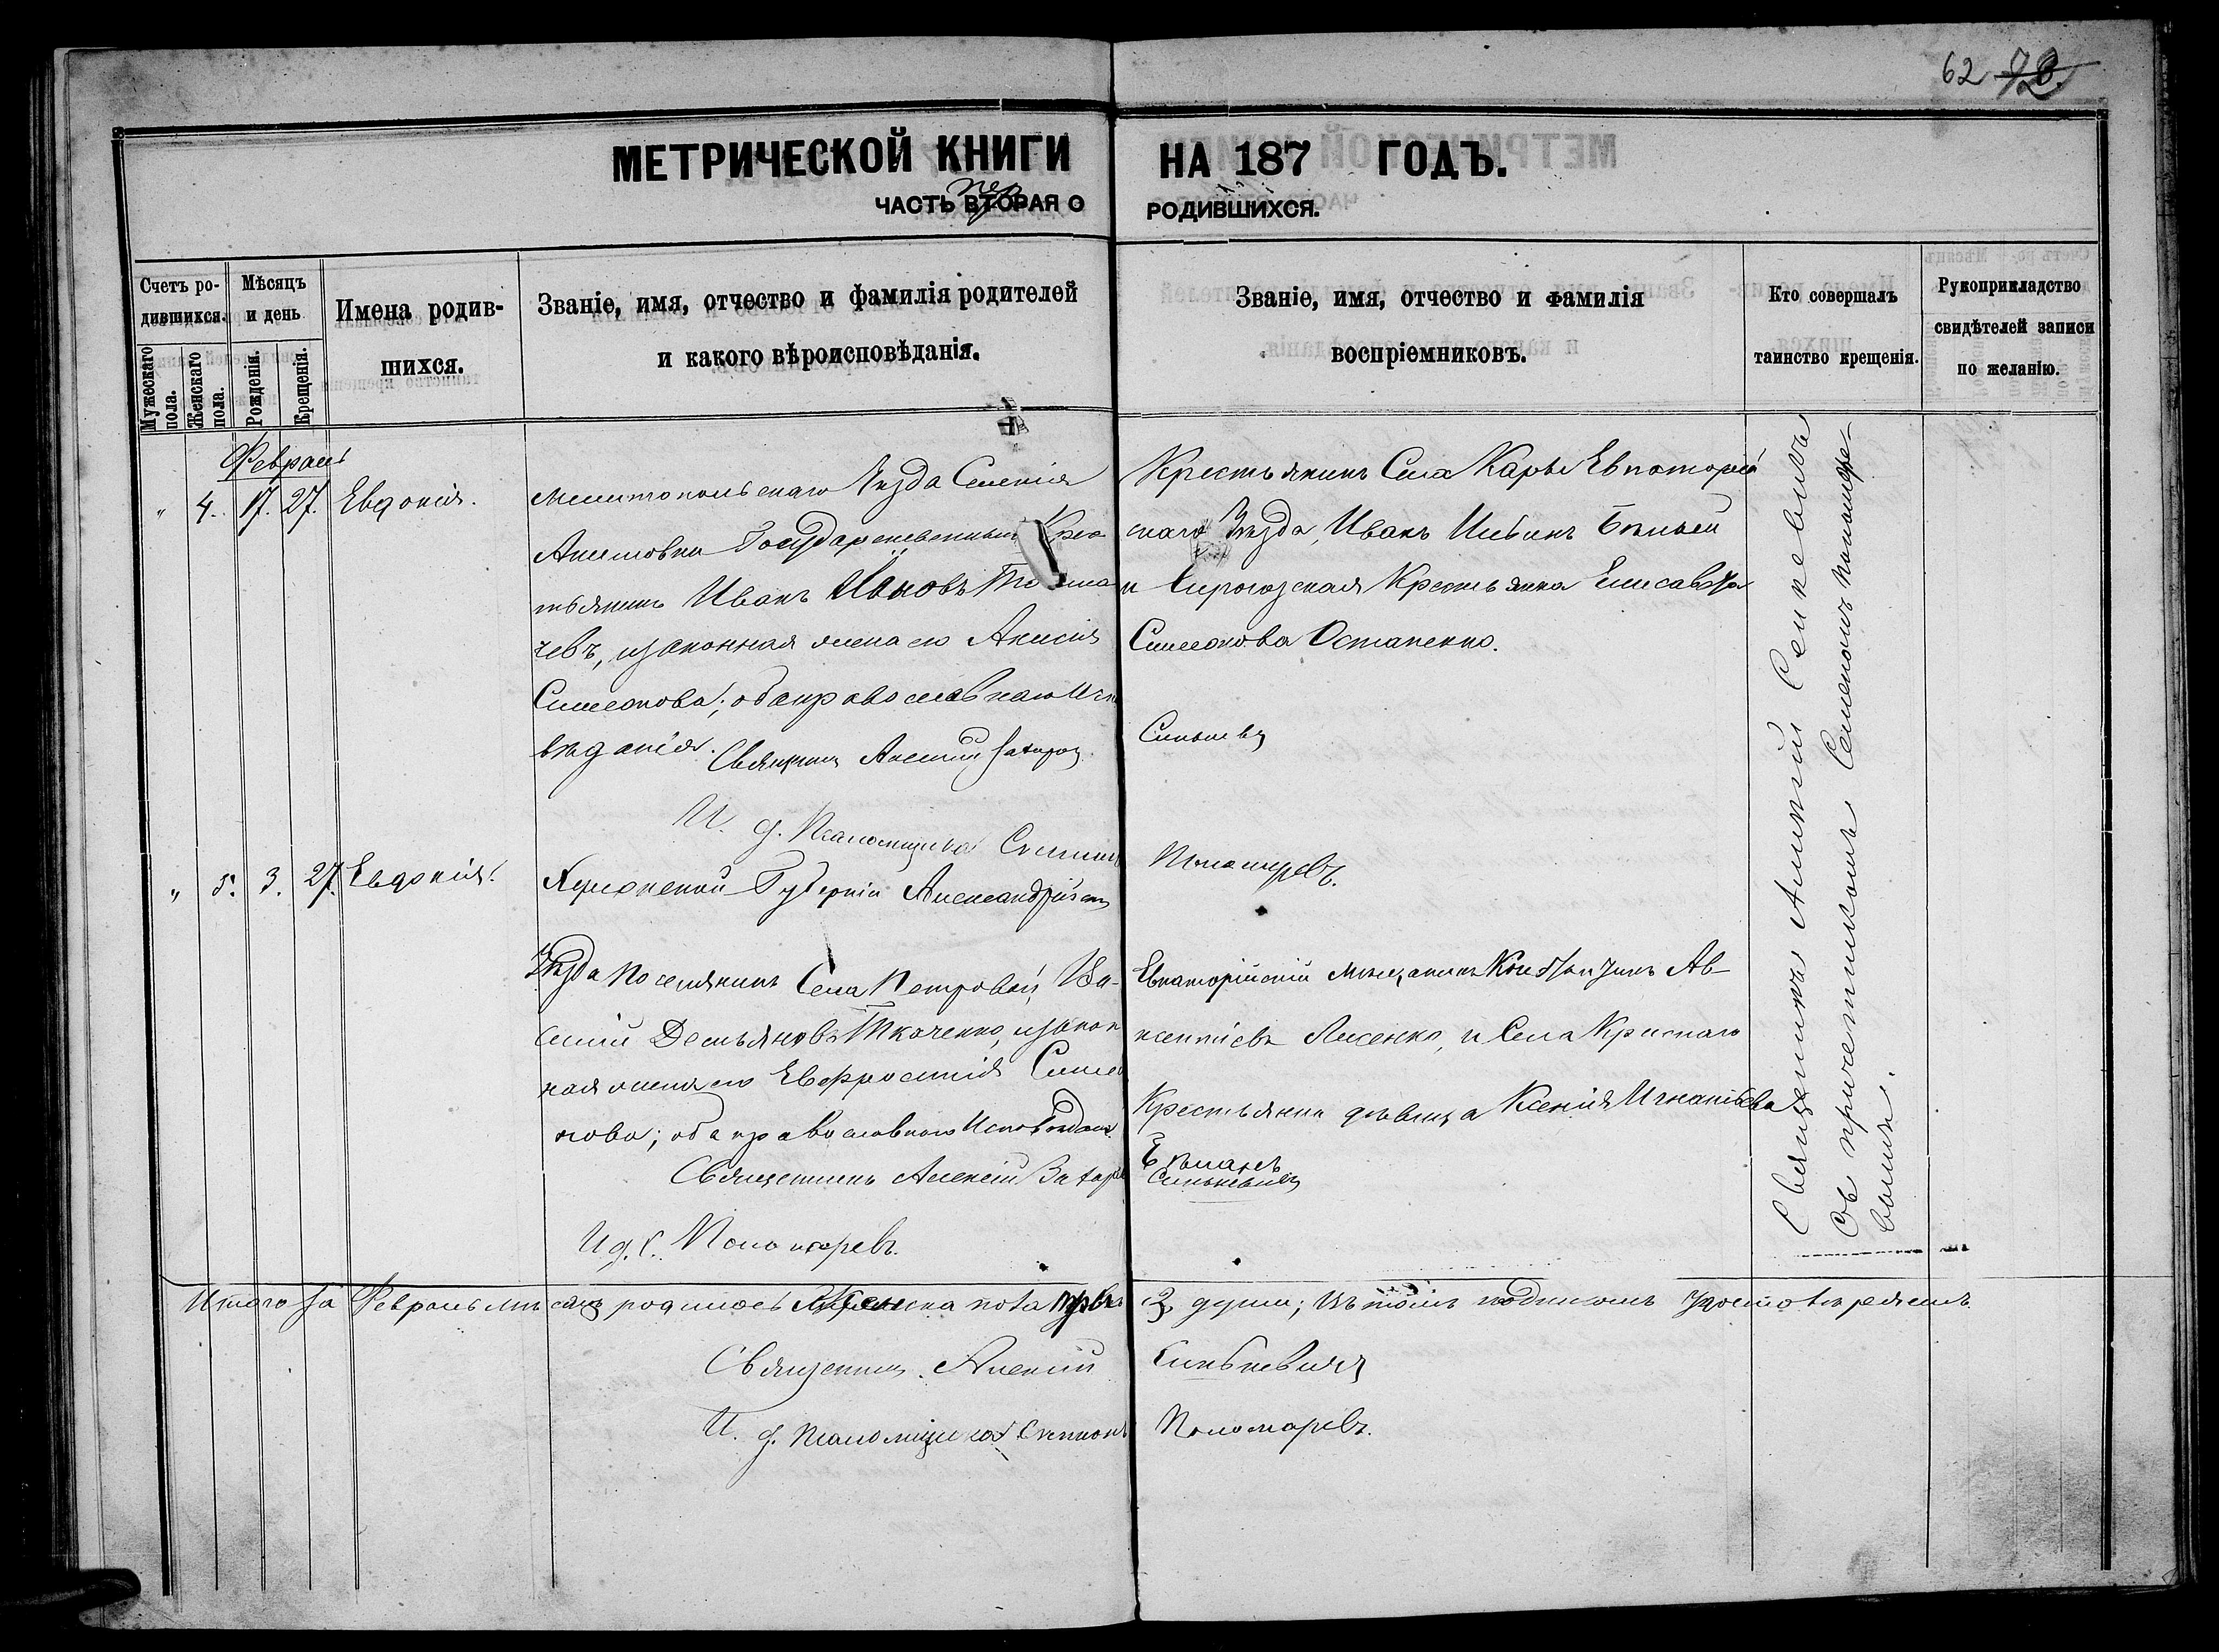 62 72
МЕТРИЧЕСКОЙ КНИГИ НА 187 ГОДЪ.
ЧАСТЬ ВТОРАЯ О РОДИВШИХСЯ.
пер
Счетъ ро-
дившихся.
Мужескаго
пола.
Женскаго
пола.
Мѣсяцъ
и день
Рожденія.
Крещенія.
Имена родив-
шихся.
Званіе, имя, отчество и фамилія родителей
и какого вѣроисповѣданія.
Званіе, имя, отчество и фамилія
воспріемниковъ.
Кто совершалъ
таинство крещенія.
Рукоприкладство
свидѣтелей записи
по желанію.
Февраль
" 4. 17. 27. Евдокія.
Мелитопольскаго Уѣзда Селенія
Акимовки Государственный Крес
тьянинъ Иванъ
чевъ, и законная жена его
Симеонова; оба православнаго Испо
вѣданія.
Священник Алексий
И. д. Псаломщика Степанъ
Крестьянинъ Села Кары Евпаторій
скаго Уѣзда, Иванъ
и Сирогозская Крестьянка Елисавета
Симеонова Остапенко.
Синькевич
Пономаревъ.
" 5. 3. 27. Евдокія.
Херсонской Губерніи Александрійскаго
Уѣзда поселянинъ Села Петровки, Ва-
силій Демьяновъ Ткаченко, и закон
ная жена его Евфросинія Симео
нова; оба православнаго Исповѣданія.
Священникъ Алексій
И д. П. Пономаревъ.
Евпаторійскій мѣщанинъ Константинъ Ав-
ксентіевъ Лисенко, и Села Крыскаго
Крестьянка дѣвица Ксенія Игнатіева
Синькевичъ
Священникъ Алексий Синкевичъ
съ причетникомъ Семеномъ Пономаре-
вымъ.
Итого за Февраль мѣсяцъ родилось женска пола 2 души; Въ томъ подписомъ удостовѣряемъ.
Священник Алексий Синькевичъ
И. д. Псаломщика Степанъ Пономаревъ.